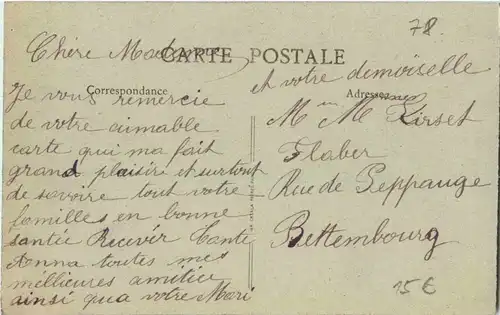 78.
Chère Madame
CARTE POSTALE
Correspondance
Adresse
Je vous remercie
de votre aimable
carte qui ma fait
grand plaisir et surtout
de savoire tout votre
familles en bonne
santée Recevér Tante
Anna toutes mes
mellieures amitiée
ainsi qua votre Mari
et votre demoiselle
Kirset
Flaber
Rue de Peppauge
Bettembourg
15€